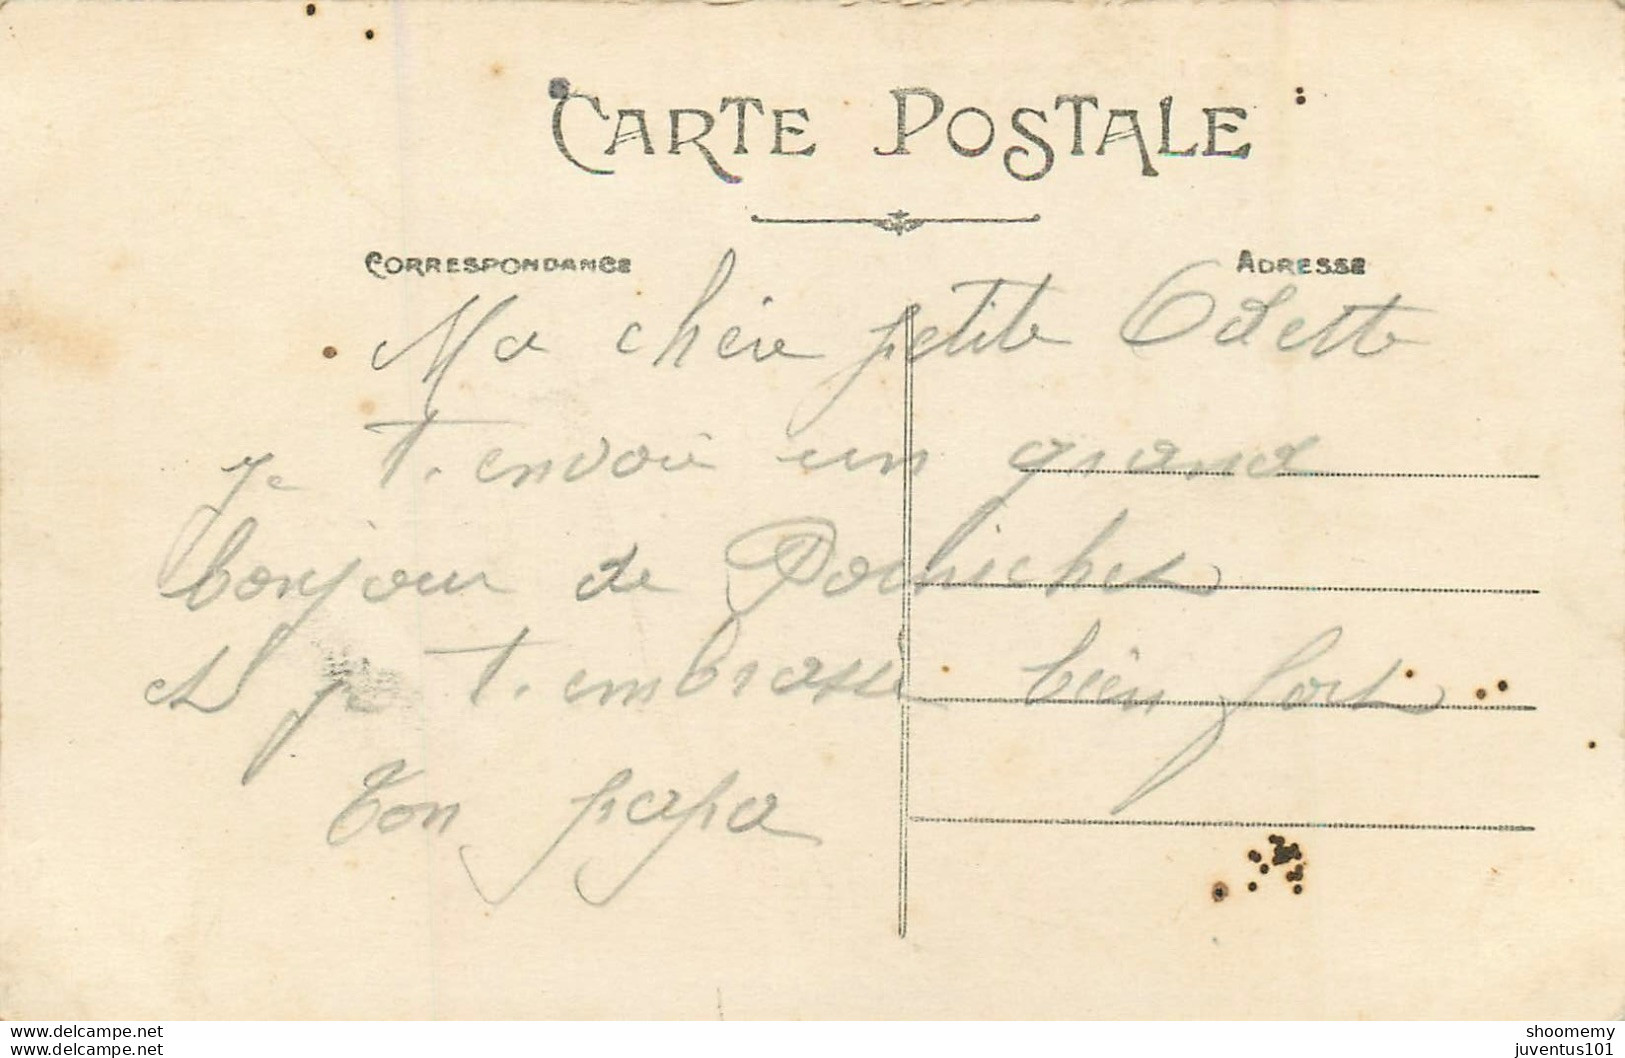 CARTE POSTALE
CORRESPONDANCE
ADRESSE
Ma chère petite Odette
je t'envoie un grand
bonjour de Pornichet
et je t'embrasse bien fort
Ton papa
www.delcampe.net
www.delcampe.net
shoomemy
juventus101